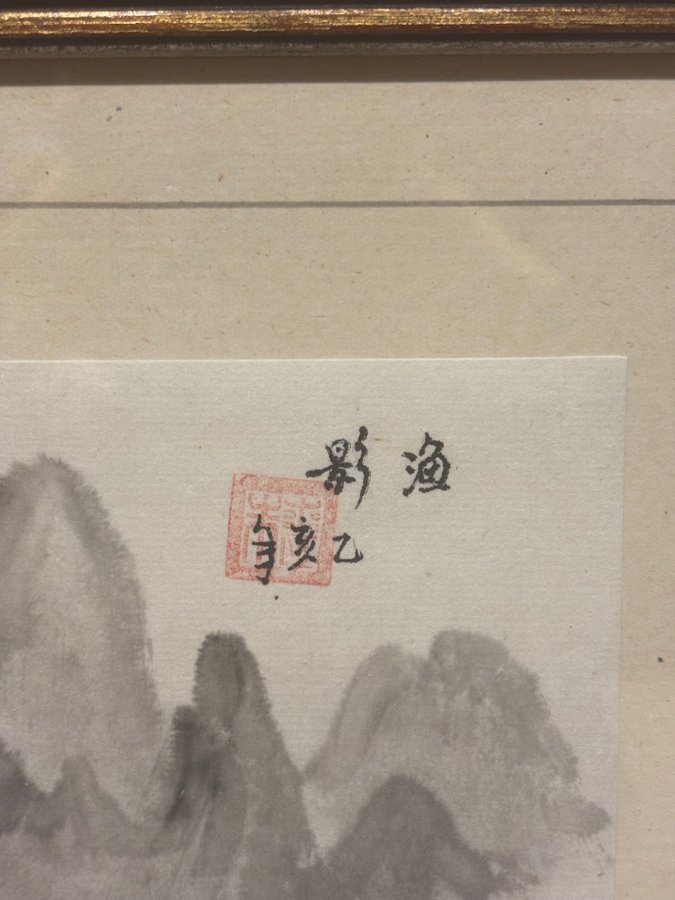 渔影
乙亥年